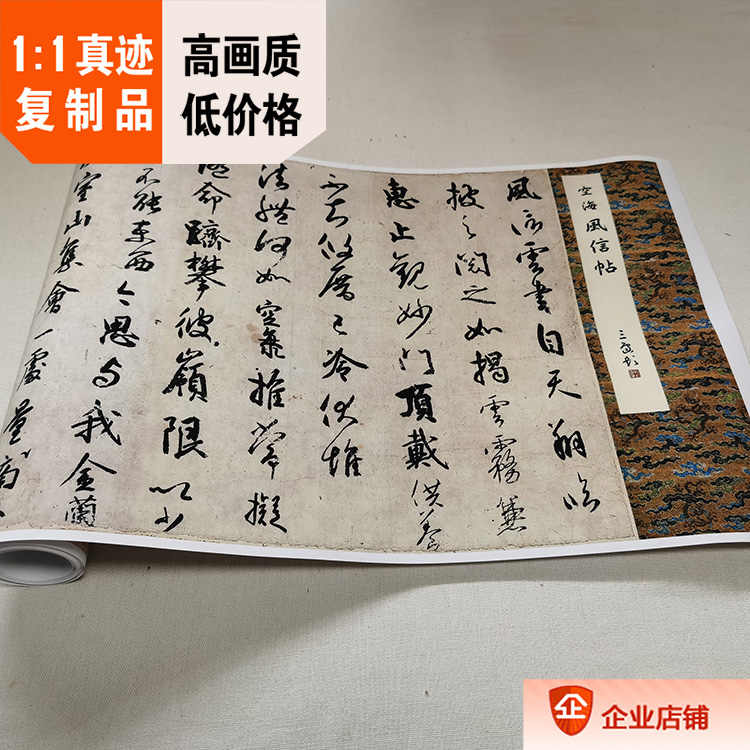 1:1真迹
复制品
高画质
低价格
空海風信帖
風信雲書自天翔臨
披之閱之如揭雲霧兼
惠止觀妙門頂戴供養
不知攸厝已冷伏惟
法體何如空海推常擬
隨命躋攀彼嶺限以少
不能東西今思与我金蘭
室山集會一處量商
企业店铺